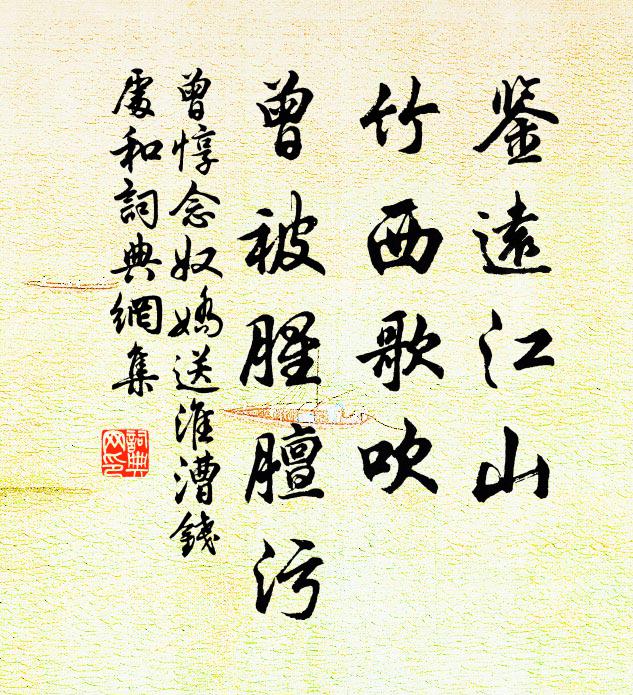 鉴遠江山
竹西歌吹
曾被腥膻污
曾惇念奴嬌送淮漕錢
處和詞典網集
詞典
网印